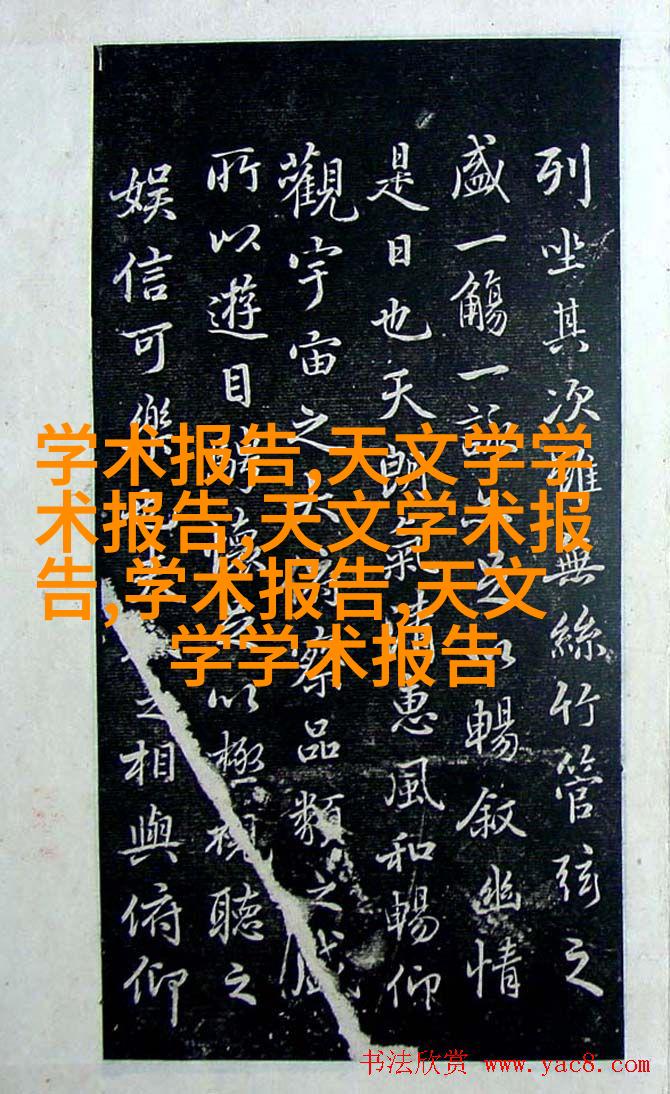 列坐其次雖無絲竹管弦之
盛一觴一詠亦足以暢叙幽情
是日也天朗氣清惠風和暢仰
觀宇宙之大俯察品類之盛
所以遊目騁懷足以極視聽之
娱信可樂之相與俯仰
学术报告,天文学学
术报告,天文学术报
告,学术报告,天文
学学术报告
书法欣赏 www.yac8.com